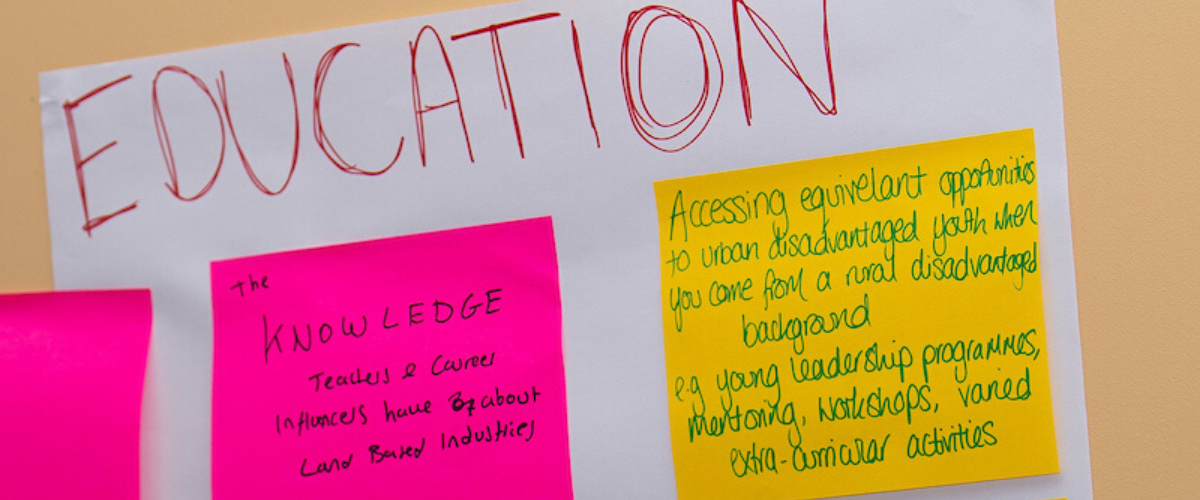 EDUCATION
The
KNOWLEDGE
Teachers & Career
Influencers have about
Land Based Industries
Accessing equivelant opportunities
to urban disadvantaged youth when
you come from a rural disadvantaged
background
e.g young leadership programmes,
mentoring, workshops, varied
extra-curricular activities